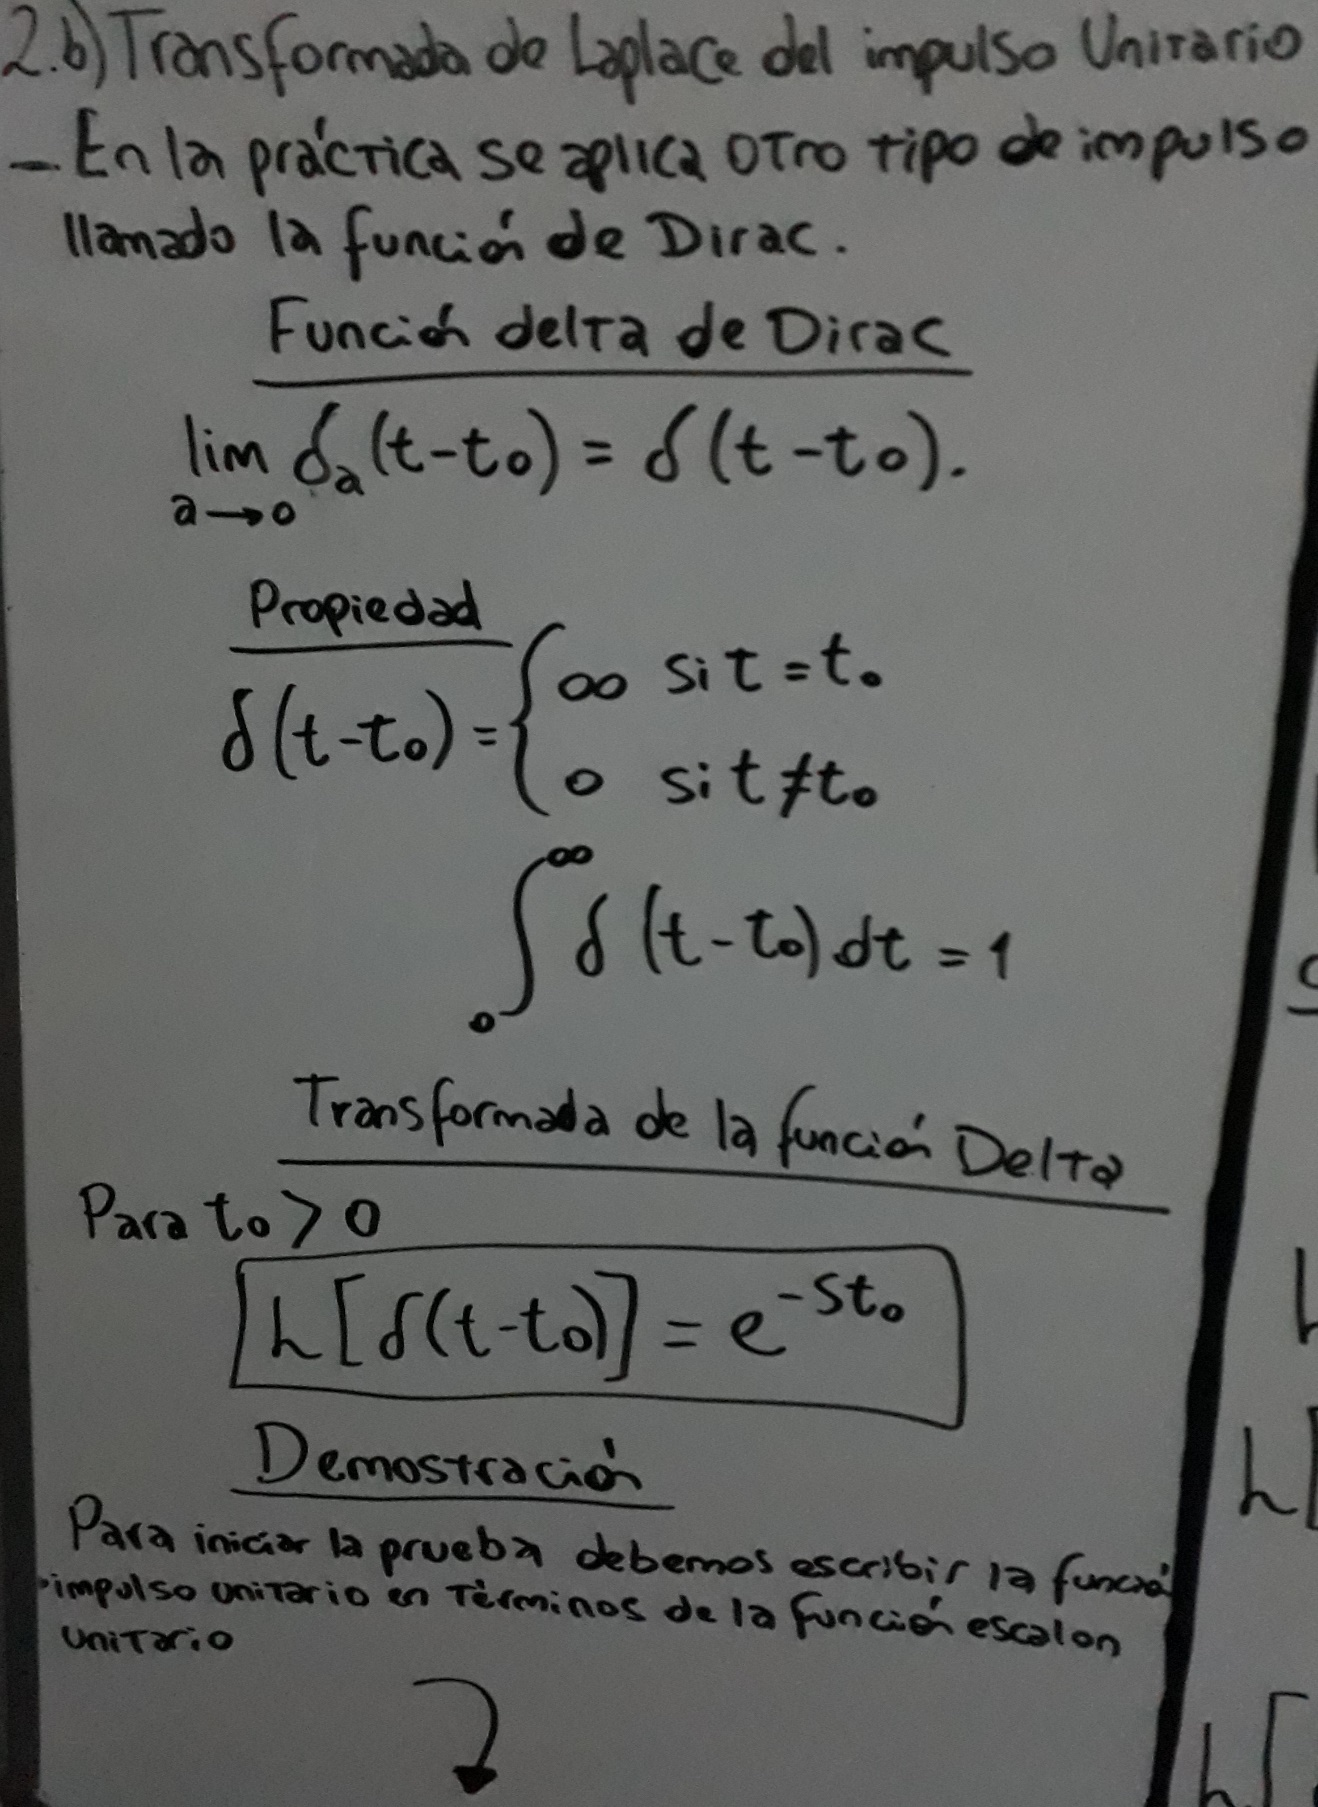 2.b) Transformada de Laplace del impulso Unitario
- En la práctica se aplica otro tipo de impulso
llamado la función de Dirac.
Función delta de Dirac
lim δₐ(t-t₀) = δ(t-t₀).
a→0
Propiedad
δ(t-t₀) = { ∞ si t = t₀
0 si t ≠ t₀
∫₀^∞ δ(t-t₀) dt = 1
Transformada de la función Delta
Para t₀ > 0
h[δ(t-t₀)] = e^(-st₀)
Demostración
Para iniciar la prueba debemos escribir la función
impulso unitario en términos de la función escalon
unitario